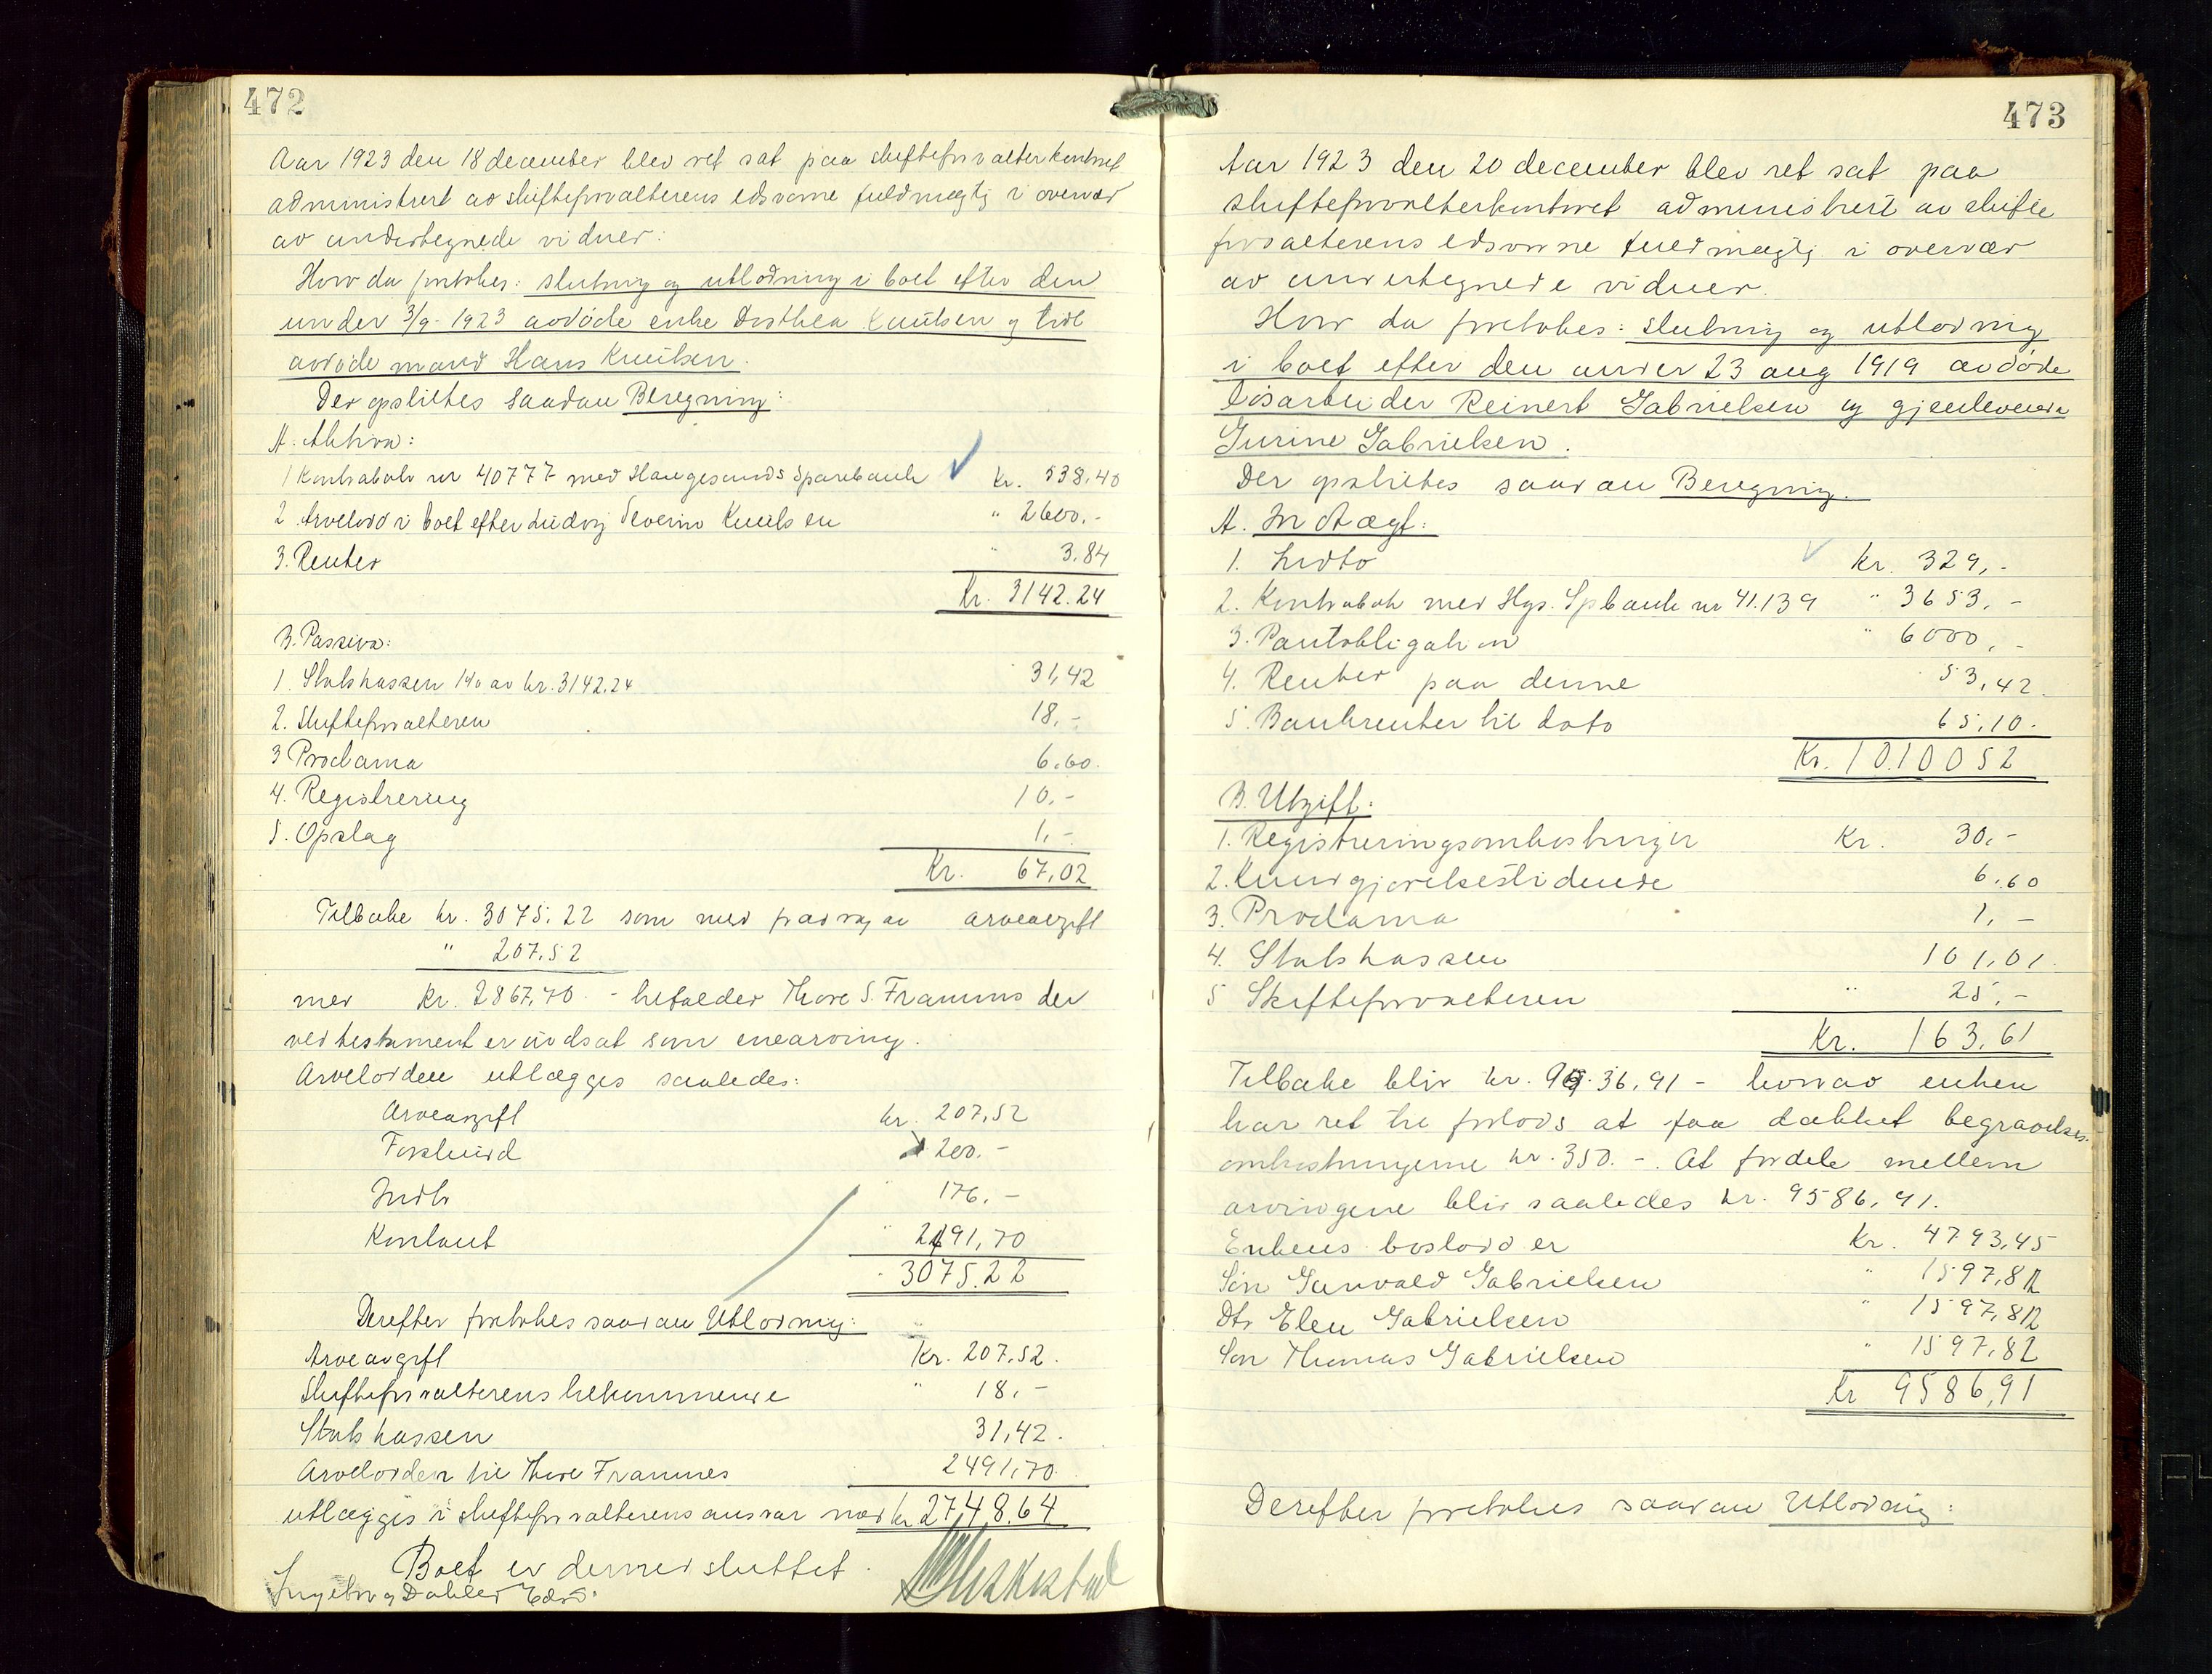 472
Aar 1923 den 18 december blev ret sat paa skifteforvalterkontoret
administrert av skifteforvalterens edsvorne fuldmægtig i overvær
av undertegnede vidner:
Hvor da foretokes: slutning og utlodning i boet efter den
under 3/9-1923 avdøde enke Dorthea Knutsen og tidl
avdøde mand Hans Knutsen.
Der opsættes saadan Beregning:
A. Aktiva:
1 Kontrabok nr 40777 med Haugesunds Sparebank Kr. 538,40
2 Arvelod i boet efter Ludvig Severin Knutsen " 2600.-
3. Renter " 3.84
Kr. 3142.24
B. Passiva:
1. Statskassen 1% av kr. 3142,24 31,42
2. Skifteforvalteren 18,-
3 Proclama 6.60.
4. Registrering 10,-
5. Opslag 1,-
Kr. 67,02
Tilbake kr. 3075.22 som med fradrag av arveavgift
" 207.52
med Kr. 2867,70 - tilfalder Thore S. Framnes der
ved testament er indsat som enearving.
Arvelodden utlægges saaledes:
Arveavgift kr. 207,52
Forskud 200.-
Indbo " 176,-
Kontant " 2491,70
3075.22
Derefter foretokes saadan Utlodning:
Arveavgift Kr. 207,52.
Skifteforvalterens tilkommende " 18,-
Statskassen 31,42.
Arvelodden til Thore Framnes 2491,70
utlægges i skifteforvalterens ansvar med kr 2748.64
Boet er dermed sluttet.
Ingeborg Edsv.
473
Aar 1923 den 20 december blev ret sat paa
skifteforvalterkontoret administrert av skifte
forvalterens edsvorne fuldmægtig i overvær
av undertegnede vidner.
Hvor da foretokes: slutning og utlodning
i boet efter den under 23 aug 1919 avdøde
løsarbeider Reinert Gabrielsen og gjenlevende
Gurine Gabrielsen.
Der opsættes saadan Beregning.
A. Indtægt:
1. Indbo Kr. 329,-
2. Kontrabok med Hgs. Spbank nr 41.139 " 3653,-
3. Pantobligation " 6000,-
4. Renter paa denne 53,42.
5. Bankrenter til dato 65,10.
Kr. 10.10052
B. Utgift:
1. Registreringsomkostninger Kr. 30,-
2. Kundgjørelsestidende 6,60
3. Proclama 1,-
4. Statskassen 101,01.
5 Skifteforvalteren " 25,-
Kr. 163,61
Tilbake blir kr. 99.36,91 - hvorav enken
har ret til forlods at faa dækket begravelses-
omkostningerne kr. 350.-. At fordele mellem
arvingene blir saaledes kr. 9586,91.
Enkens boslod er Kr. 4793,45
Søn Gunvald Gabrielsen " 1597,82
Dtr Elen Gabrielsen " 1597,82
Søn Thomas Gabrielsen " 1597,82
Kr 9586,91
Derefter foretokes saadan Utlodning: